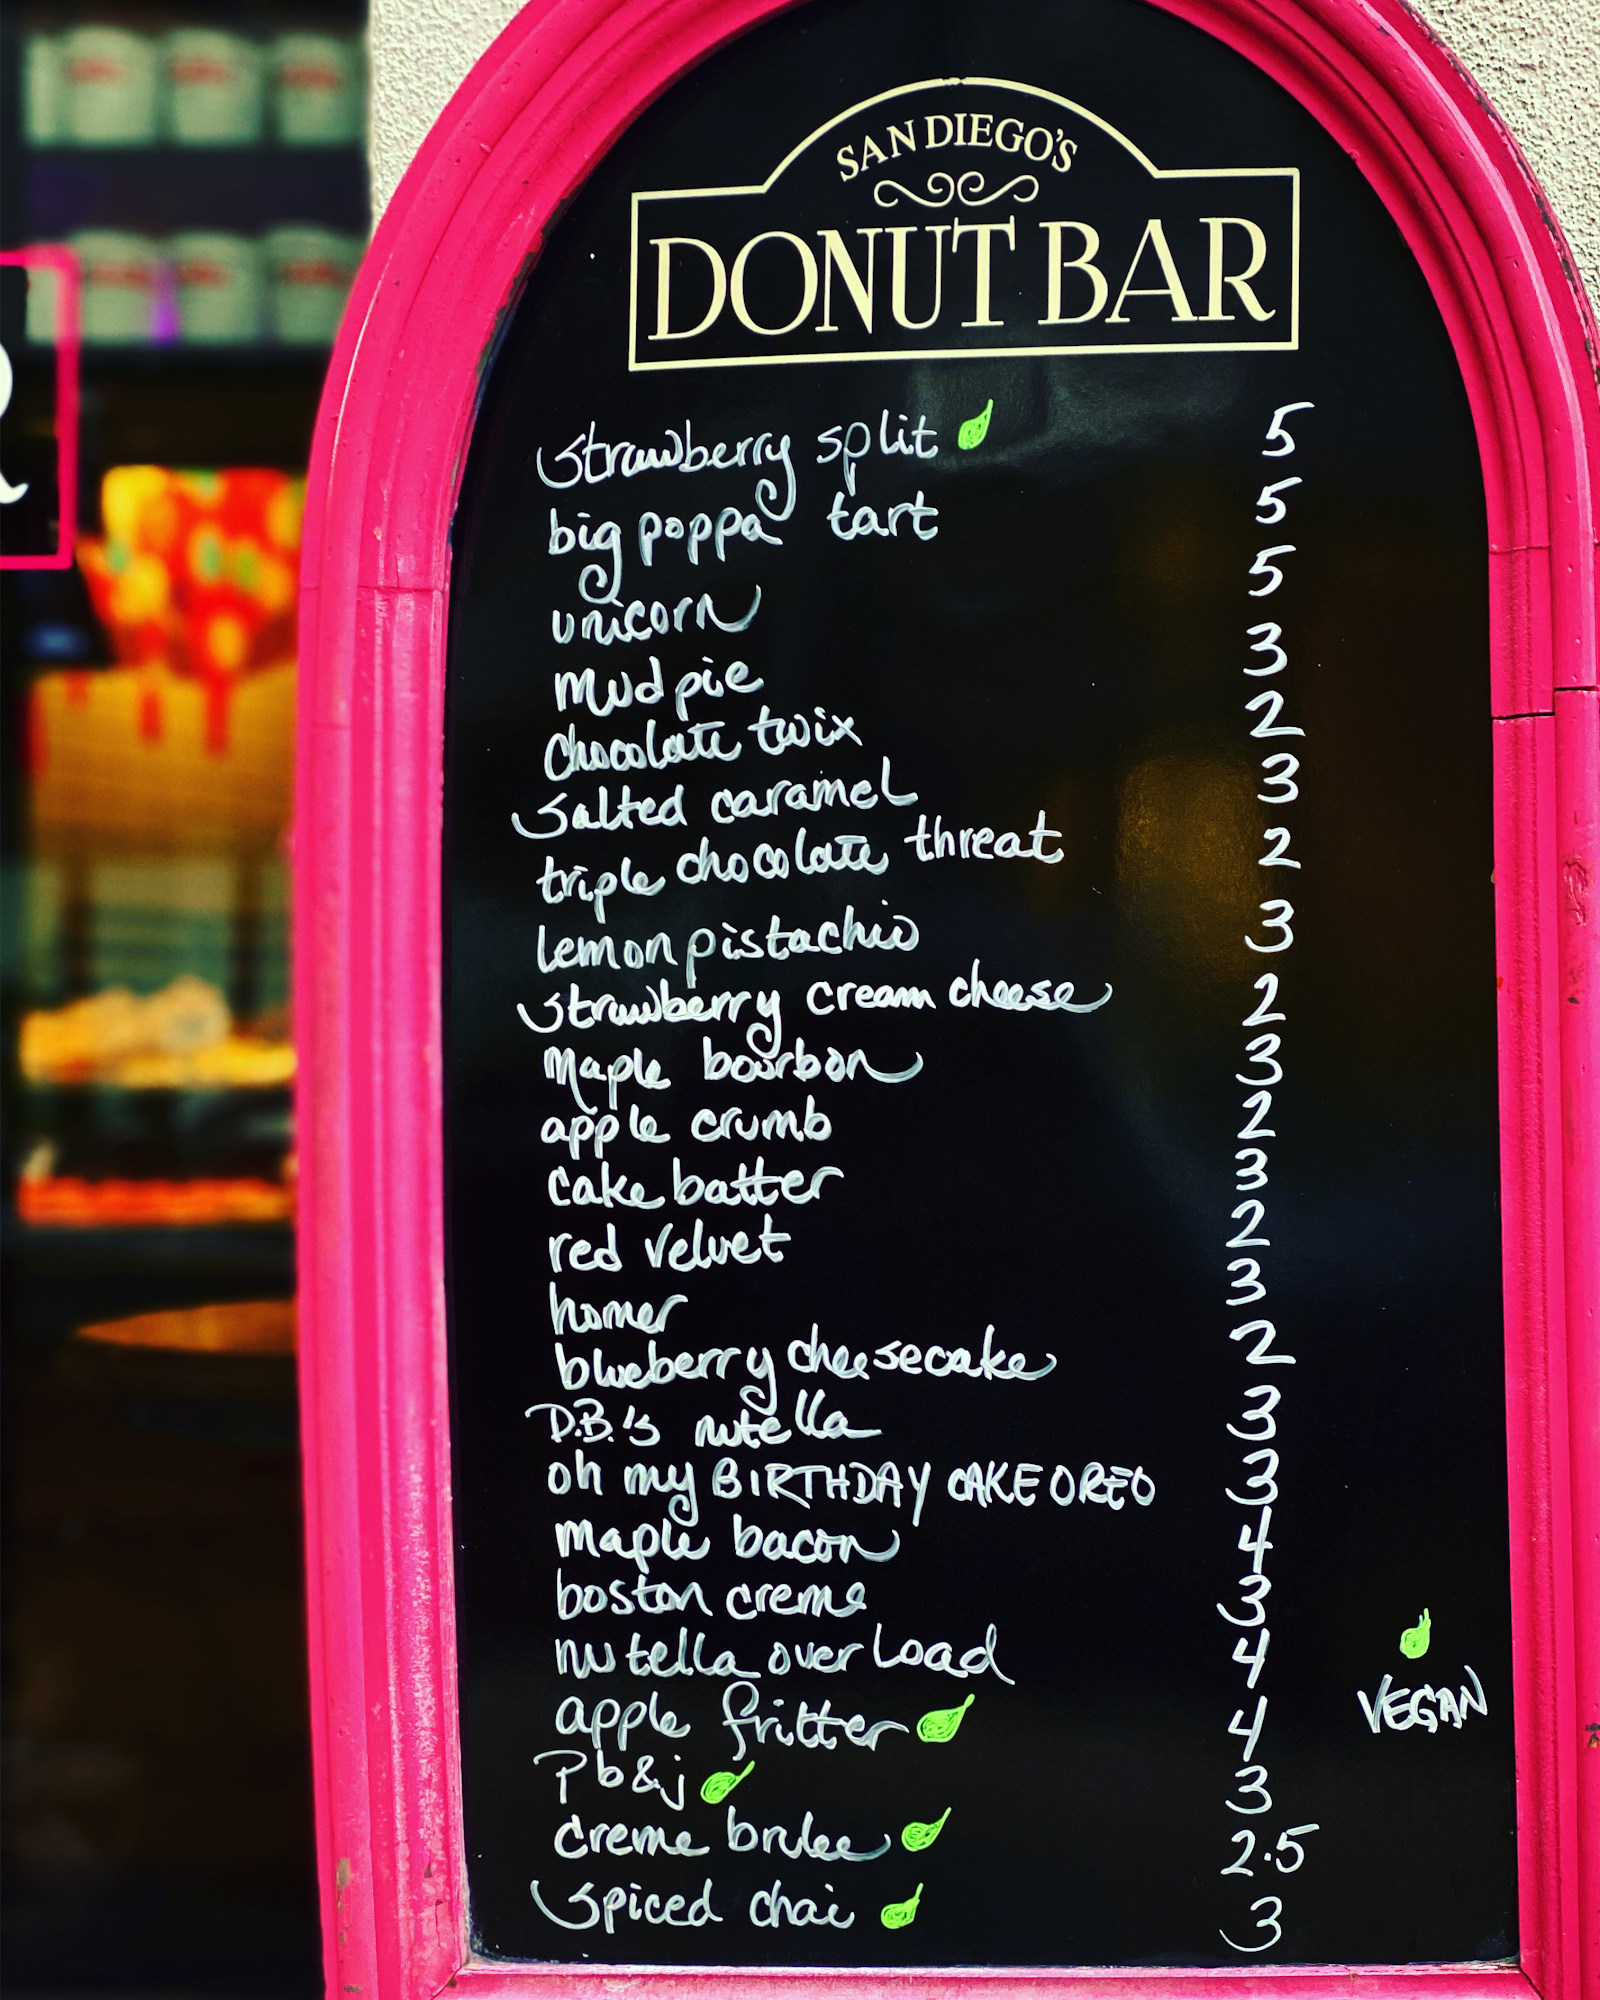 SAN DIEGO'S
DONUT BAR
strawberry split 5
big poppa tart 5
unicorn 5
mud pie 3
chocolate twix 2
salted caramel 3
triple chocolate threat 2
lemon pistachio 3
strawberry cream cheese 2
maple bourbon 3
apple crumb 2
cake batter 3
red velvet 2
homer 3
blueberry cheesecake 2
D.B.'s nutella 3
oh my BIRTHDAY CAKE OREO 3
maple bacon 4
boston creme 3
nutella overLoad 4
apple fritter 4
VEGAN
Pb&j 3
creme brulee 2.5
spiced chai 3